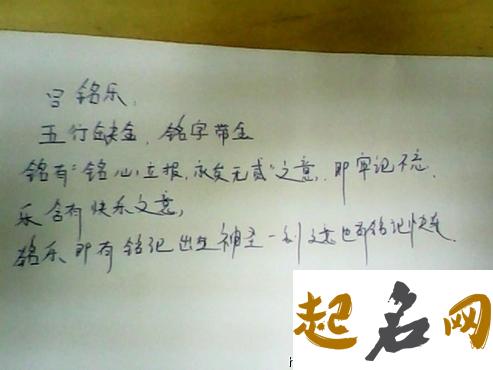 吕铭乐,
五行缺金,铭字带金
铭有"铭心立报,永矢无贰"之意,即牢记不忘.
乐含有快乐之意,
铭乐即有铭记出生神圣一刻之意也有铭记快乐.
起名网
h